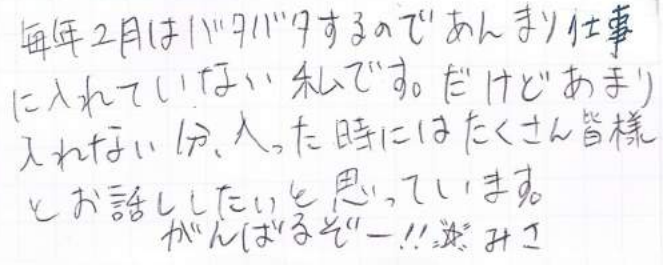 毎年2月はバタバタするのであんまり仕事
に入れていない私です。だけどあまり
入れない分、入った時にはたくさん皆様
とお話ししたいと思っています。
がんばるぞー!!☆ みさ